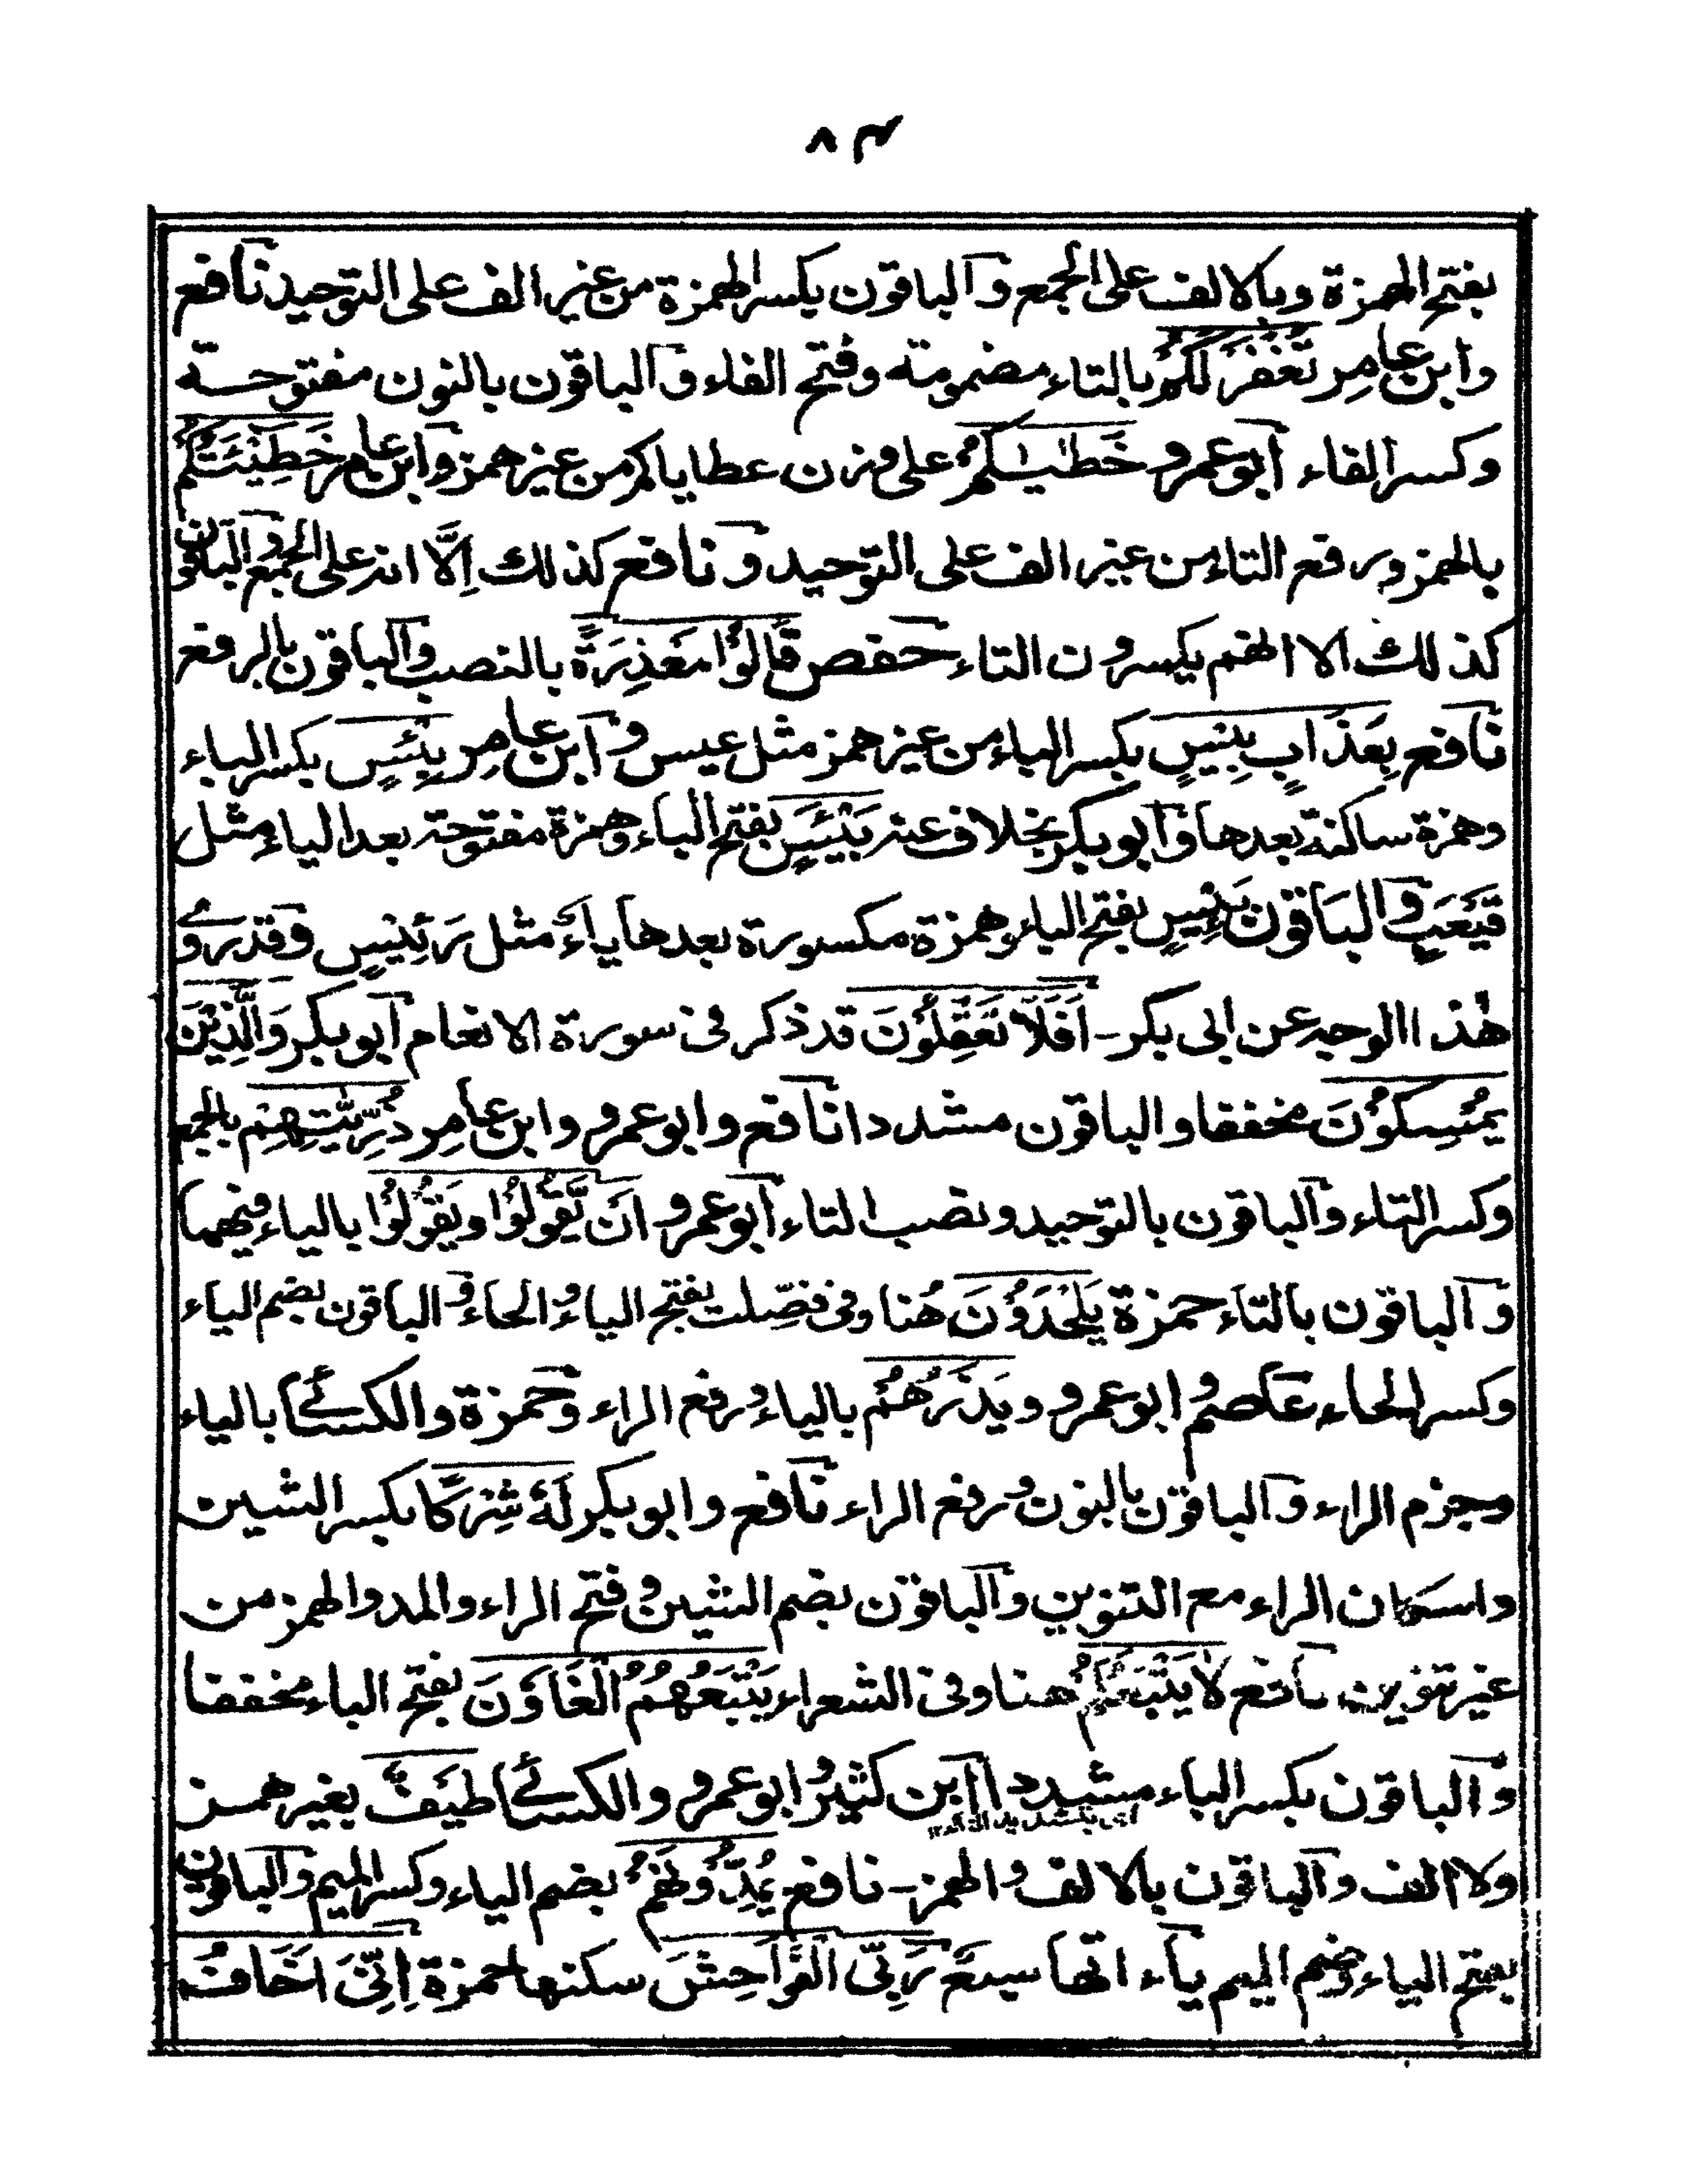 ٨٣
بفتح الهمزة وبالالف على الجمع والباقون بكسر الهمزة من غير الف على التوحيد نافع
وابن عامر تُغْفَرْ لَكُمْ بالتاء مضمومة وفتح الفاء والباقون بالنون مفتوحة
وكسر الفاء ابو عمرو خَطٰيٰكُمْ على وزن عطاياكم من غير همز وابن عامر خَطِيْئَتُكُمْ
بالهمز ورفع التاء من غير الف على التوحيد ونافع كذلك اِلَّا انه على الجمع والباقون
كذلك الا انهم يكسرون التاء حفص قَالُوْا مَعْذِرَةً بالنصب والباقون بالرفع
نافع بِعَذَابٍ بِيْسٍ بكسر الباء من غير همز مثل عيس وابن عامر بِئْسٍ بكسر الباء
وهمزة ساكنة بعدها وابو بكر بخلاف عنه بَيْئَسٍ بفتح الباء وهمزة مفتوحة بعد الياء مثل
قَيْعَبٍ والباقون بَئِيْسٍ بفتح الباء وهمزة مكسورة بعدها ياء مثل رَئِيْسٍ وقد روى
هٰذا الوجه عن ابى بكر - اَفَلَا تَعْقِلُوْنَ قد ذكر فى سورة الانعام ابو بكر وَالَّذِيْنَ
يُمْسِكُوْنَ مخففا والباقون مشددا نافع وابو عمرو وابن عامر ذُرِّيّٰتِهِمْ بالجمع
وكسر التاء والباقون بالتوحيد ونصب التاء ابو عمرو اَنْ يَّقُوْلُوْا ويَقُوْلُوْا بالياء فيهما
والباقون بالتاء حمزة يَلْحَدُوْنَ هُنا وفى فصّلت بفتح الياء والحاء والباقون بضم الياء
وكسر الحاء عاصم وابو عمرو ويَذَرُهُمْ بالياء ورفع الراء وحمزة والكسائى بالياء
وجزم الراء والباقون بالنون ورفع الراء نافع وابو بكر لَهٗ شِرْكًا بكسر الشين
واسكان الراء مع التنوين والباقون بضم الشين وفتح الراء والمد والهمز من
غير تنوين نافع لَا يَتْبَعُوْكُمْ هنا وفى الشعراء يَتْبَعُهُمُ الْغَاوٗنَ بفتح الباء مخففا
والباقون بكسر الباء مشددا ابن كثير وابو عمرو والكسائى طَيْفٌ بغير همز
اى بتشديد التاء ١٢
ولا الف والباقون بالالف والهمز - نافع يُمِدُّوْنَهُمْ بضم الياء وكسر الميم والباقون
بفتح الياء وضم الميم ياء اتها سبع رَبِّىَ الْفَوَاحِشَ سكنها حمزة اِنِّىَ اَخَافُ